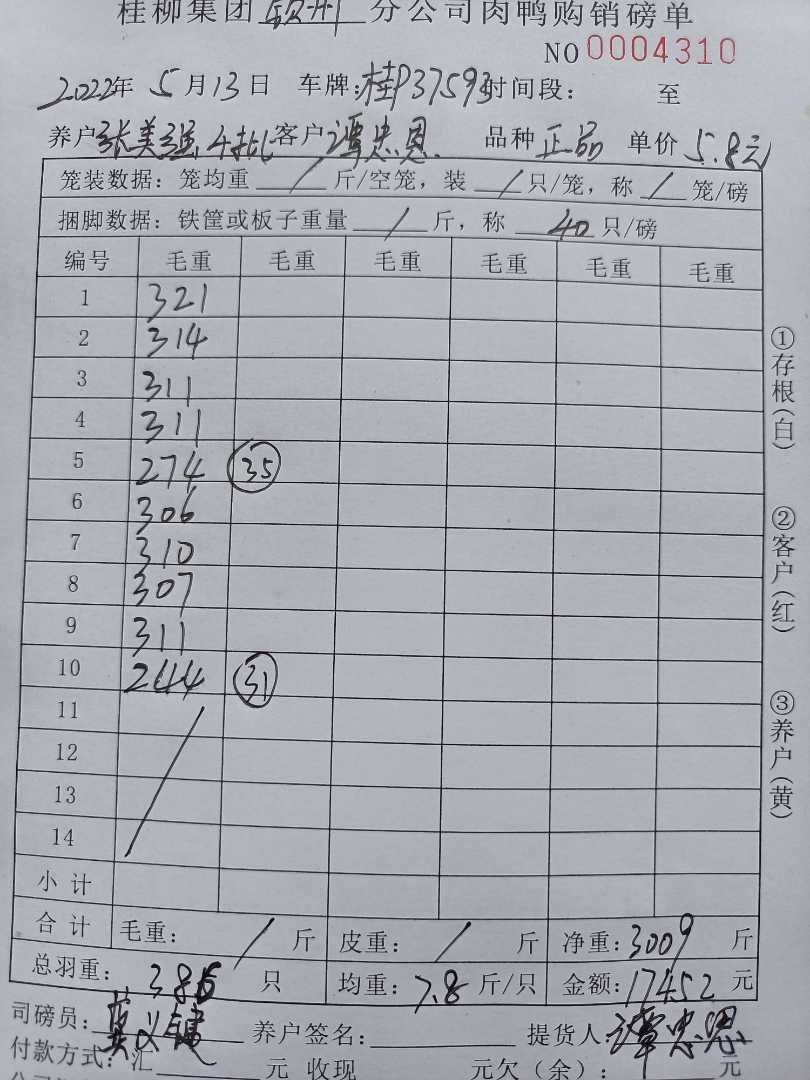 桂柳集团 钦州 分公司肉鸭购销磅单
NO 0004310
2022年 5月13日 车牌:桂P37593 时间段: 至
养户 张美强 4批 客户 谭忠恩 品种 正品 单价 5.8元
笼装数据: 笼均重 / 斤/空笼, 装 / 只/笼, 称 / 笼/磅
捆脚数据: 铁筐或板子重量 / 斤, 称 40 只/磅
编号 毛重 毛重 毛重 毛重 毛重 毛重
1 321
2 314
3 311
4 311
5 274 35
6 306
7 310
8 307
9 311
10 244 31
11
12
13
14
小计
合计 毛重: / 斤 皮重: / 斤 净重: 3009 斤
总羽重: 386 只 均重: 7.8 斤/只 金额: 17452 元
司磅员: 养户签名: 提货人: 谭忠恩
付款方式: 汇 元 收现 元欠(余): 元
①存根(白)
②客户(红)
③养户(黄)